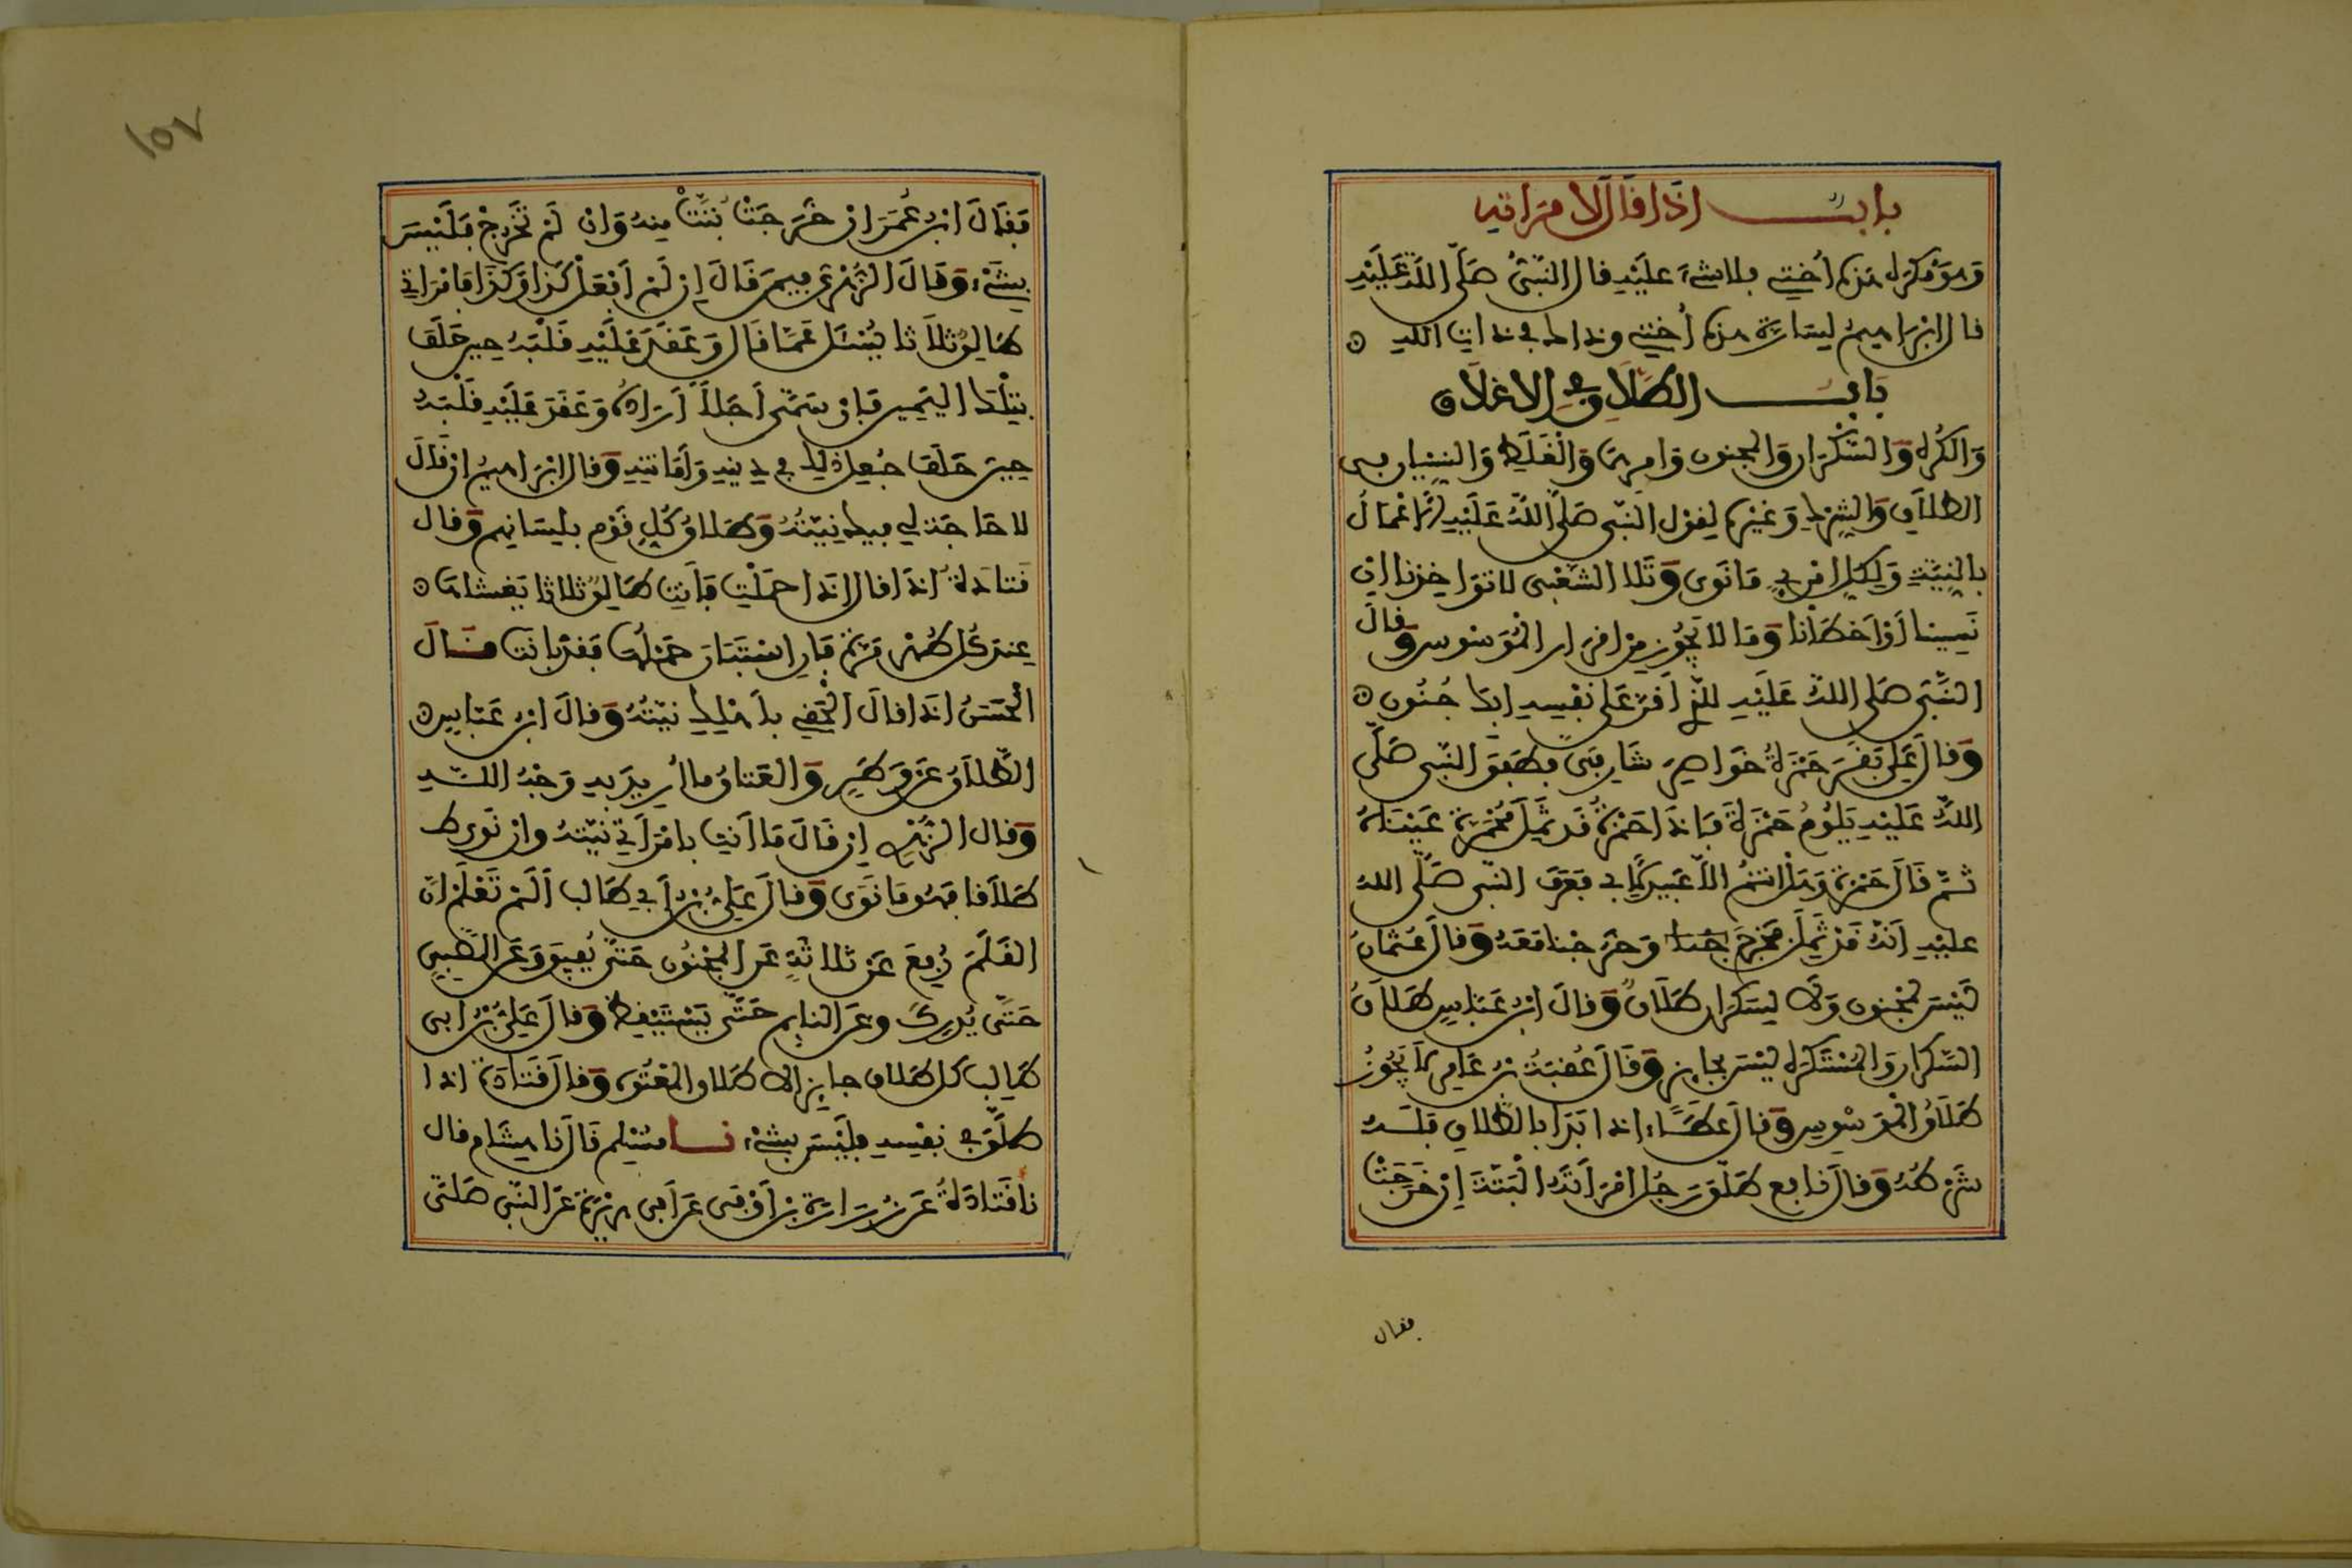 باب اذا قال لامراته
وهو مكره هذه أختي فلا شيء عليه قال النبي صلى الله عليه
قال ابراهيم لسارة هذه أختي وذلك في ذات الله
باب الطلاق في الاغلاق
والكره والسكران والمجنون وامرهما والغلط والنسيان في
الطلاق والشرك وغيره لقول النبي صلى الله عليه الاعمال
بالنية ولكل امرئ ما نوى وتلا الشعبي لا تؤاخذنا ان
نسينا أو أخطأنا وما لا يجوز من اقرار الموسوس وقال
النبي صلى الله عليه للذي أقر على نفسه ابك جنون
وقال علي بقر حمزة خواصر شارفي فطفق النبي صلى
الله عليه يلوم حمزة فاذا حمزة قد ثمل محمرة عيناه
ثم قال حمزة وهل انتم الا عبيد لأبي فعرف النبي صلى الله
عليه أنه قد ثمل فخرج وخرجنا معه وقال عثمان
ليس لمجنون ولا لسكران طلاق وقال ابن عباس طلاق
السكران والمستكره ليس بجايز وقال عقبة بن عامر لا يجوز
طلاق الموسوس وقال عطاء اذا بدا بالطلاق فله
شرطه وقال نافع طلق رجل امرأته البتة إن خرجت
فقال
١٥٧
فقال ابن عمر ان خرجت بتت منه وان لم تخرج فليس
بشيء وقال الزهري فيمن قال إن لم أفعل كذا وكذا فامراتي
طالق ثلاثا يسئل عما قال وعقد عليه قلبه حين حلف
بتلك اليمين فإن سمى أجلا أراده وعقد عليه قلبه
حين حلف جعل ذلك في دينه وأمانته وقال ابراهيم ان قال
لا حاجة لي فيك نيته وطلاق كل قوم بلسانهم وقال
قتادة اذا قال اذا حملت فأنت طالق ثلاثا يغشاها
عند كل طهر مرة فإن استبان حملها فقد بانت وقال
الحسن اذا قال الحقي بأهلك نيته وقال ابن عباس
الطلاق عن وطر والعتاق ما أريد به وجه الله
وقال الزهري إن قال ما أنت بامرأتي نيته وان نوى ط
طلاقا فهو ما نوى وقال علي بن أبي طالب ألم تعلم ان
القلم رفع عن ثلاثة عن المجنون حتى يفيق وعن الصبي
حتى يدرك وعن النايم حتى يستيقظ وقال علي بن ابي
طالب كل طلاق جايز الا طلاق المعتوه وقال قتادة اذا
طلق في نفسه فليس بشيء نا مسلم قال نا هشام قال
نا قتادة عن زرارة بن أوفى عن أبي هريرة عن النبي صلى